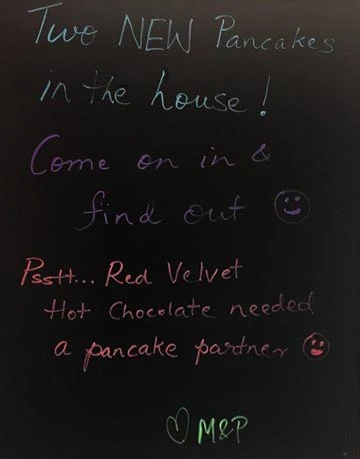 Two NEW Pancakes
in the house!
Come on in &
find out ☺
Psstt... Red Velvet
Hot Chocolate needed
a pancake partner ☺
♡ M&P